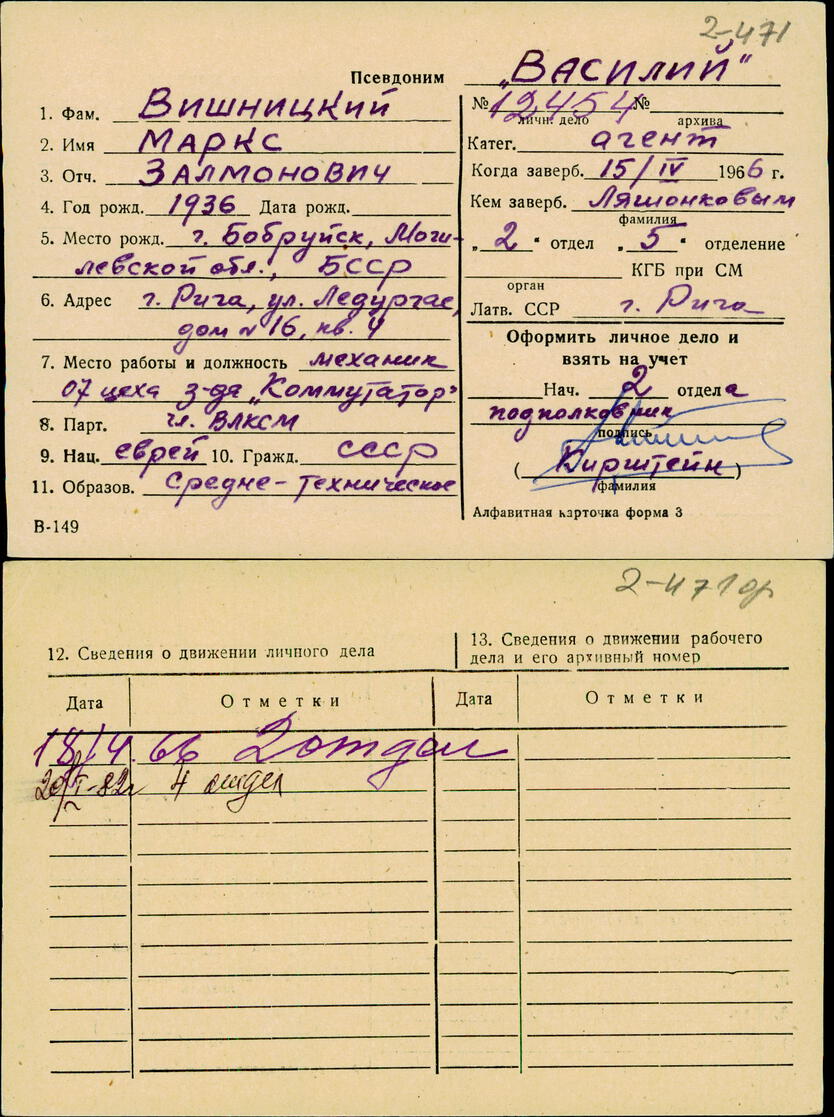 2-471
Псевдоним „ВАСИЛИЙ“
1. Фам. ВИШНИЦКИЙ
2. Имя МАРКС
3. Отч. ЗАЛМОНОВИЧ
4. Год рожд. 1936 Дата рожд.
5. Место рожд. г. Бобруйск, Моги-
левской обл., БССР
6. Адрес г. Рига, ул. Ледургас,
дом № 16, кв. 4
7. Место работы и должность механик
07 цеха з-да „Коммутатор“
8. Парт. чл. ВЛКСМ
9. Нац. еврей 10. Гражд. СССР
11. Образов. средне-техническое
В-149
№ 12454 №
личн. дело архива
Катег. агент
Когда заверб. 15/IV 1966 г.
Кем заверб. Ляшонковым
фамилия
„2“ отдел „5“ отделение
КГБ при СМ
орган
Латв. ССР г. Рига
Оформить личное дело и
взять на учет
Нач. 2 отдела
подполковник
подпись
(Кирштейн)
фамилия
Алфавитная карточка форма 3
2-471об
12. Сведения о движении личного дела
13. Сведения о движении рабочего
дела и его архивный номер
Дата Отметки Дата Отметки
18/4.66 2 отдел
4 отдел